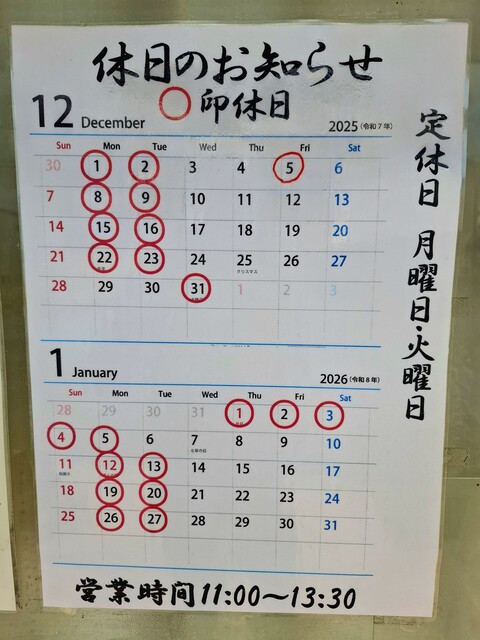 休日のお知らせ
○印休日
12 December 2025(令和7年)
Sun Mon Tue Wed Thu Fri Sat
30 1 2 3 4 5 6
7 8 9 10 11 12 13
14 15 16 17 18 19 20
21 22 23 24 25 26 27
クリスマス
28 29 30 31 1 2 3
1 January 2026(令和8年)
Sun Mon Tue Wed Thu Fri Sat
28 29 30 31 1 2 3
4 5 6 7 8 9 10
11 12 13 14 15 16 17
18 19 20 21 22 23 24
25 26 27 28 29 30 31
営業時間11:00〜13:30
定休日 月曜日・火曜日